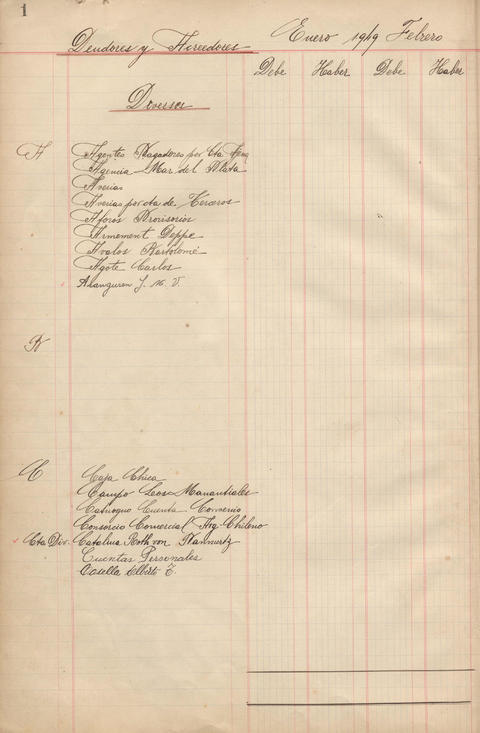 1
Deudores y Acreedores
Enero 1919 Febrero
Debe Haber Debe Haber
Diversos
A
Agentes Pagadores por Cta
Agencia Mar del Plata
Averias
Averias por cta de Terceros
Aforos Provisorios
Armement Deppe
Avalos Bartolomé
Agote Carlos
Aranguren J. M. V.
B
C
Caja Chica
Campo Leos Manantiales
Cuenta Convenio
Consorcio Comercial Arg-Chileno
Cta Div. Catalina Roth von
Cuentas Personales
Casella Alberto E.